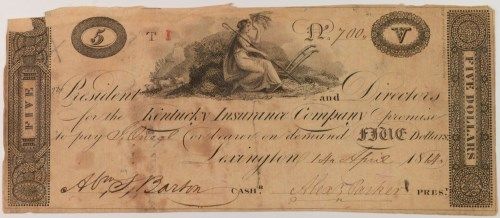 5 T 1 No. 700. V
The President and Directors
for the Kentucky Insurance Company promise
to pay or bearer on demand FIVE Dollars
Lexington 14 April 1814
Abm S. Barton CASHr. Alexr Parker PRES.
FIVE
FIVE DOLLARS